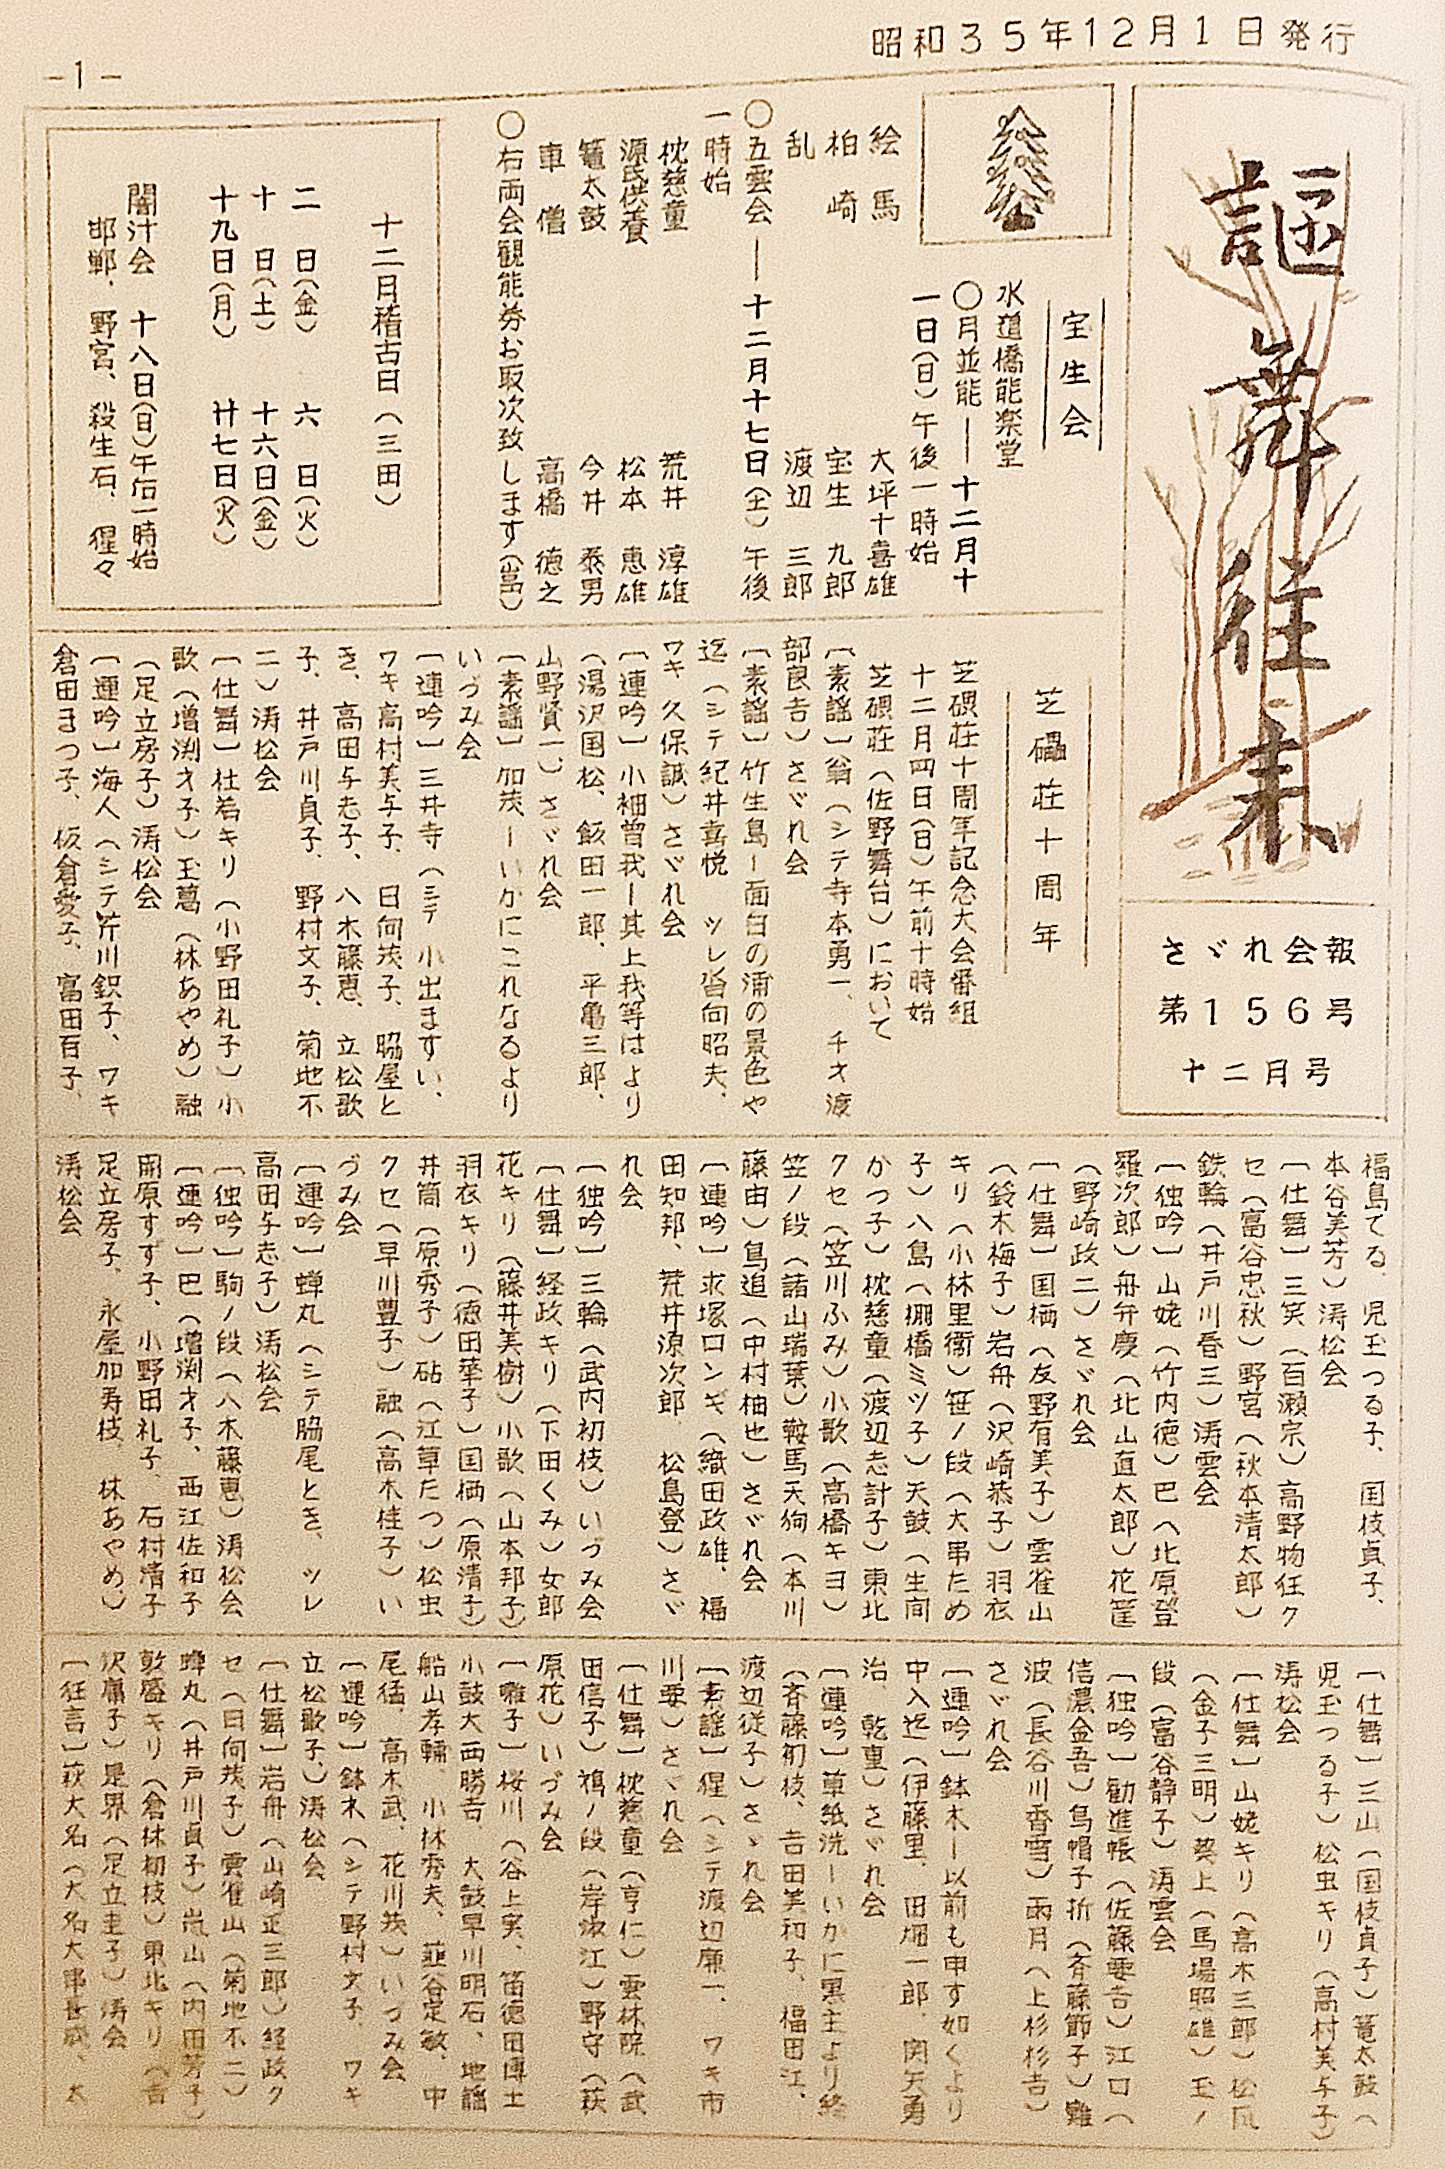 昭和35年12月1日発行
-1-
謳舞往来
さゞれ会報
第156号
十二月号
宝生会
水道橋能楽堂
〇月並能――十二月十
一日(日)午後一時始
絵馬 大坪十喜雄
柏崎 宝生九郎
乱 渡辺三郎
〇五雲会――十二月十七日(土)午後
一時始
枕慈童 荒井淳雄
源氏供養 松本惠雄
篭太鼓 今井泰男
車僧 高橋徳之
〇右両会観能券お取次致します(畄)
十二月稽古日(三田)
二日(金) 六日(火)
十日(土) 十六日(金)
十九日(月) 廿七日(火)
闇汁会 十八日(日)午后一時始
邯鄲、野宮、殺生石、猩々
芝礓荘十周年
芝礓荘十周年記念大会番組
十二月四日(日)午前十時始
芝礓荘(佐野舞台)において
〔素謡〕翁(シテ寺本勇一、千才渡
部良吉)さゞれ会
〔素謡〕竹生島ー面白の浦の景色や
迄(シテ紀井喜悦 ツレ沓向昭夫、
ワキ久保誠)さゞれ会
〔連吟〕小袖曽我ー其上我等はより
(湯沢国松、飯田一郎、平亀三郎、
山野賢一)さゞれ会
〔素謡〕加茂ーいかにこれなるより
いづみ会
〔連吟〕三井寺(シテ小出ますい、
ワキ高村美与子、日向茂子、脇屋と
き、高田与志子、八木藤恵、立松歌
子、井戸川貞子、野村文子、菊地不
二)涛松会
〔仕舞〕杜若キリ(小野田礼子)小
歌(増渕才子)玉葛(林あやめ)融
(足立房子)涛松会
〔連吟〕海人(シテ芹川鋭子、ワキ
倉田まつ子、板倉愛子、富田百子、
福島てる、児玉つる子、国枝貞子、
本谷美芳)涛松会
〔仕舞〕三笑(百瀬宗)高野物狂ク
セ(富谷忠秋)野宮(秋本清太郎)
鉄輪(井戸川春三)涛雲会
〔独吟〕山姥(竹内徳)巴(北原登
羅次郎)舟弁慶(北山直太郎)花筐
(野崎政二)さゞれ会
〔仕舞〕国栖(友野有美子)雲雀山
(鈴木梅子)岩舟(沢崎恭子)羽衣
キリ(小林里衛)笹ノ段(大串ため
子)八島(棚橋ミツ子)天鼓(生間
かつ子)枕慈童(渡辺志計子)東北
クセ(笠川ふみ)小歌(高橋キヨ)
笠ノ段(諸山瑞葉)鞍馬天狗(本川
藤由)鳥追(中村柚也)さゞれ会
〔連吟〕求塚ロンギ(織田政雄、福
田知邦、荒井源次郎、松島登)さゞ
れ会
〔独吟〕三輪(武内初枝)いづみ会
〔仕舞〕経政キリ(下田くみ)女郎
花キリ(藤井美樹)小歌(山本邦子)
羽衣キリ(徳田華子)国栖(原清子)
井筒(原秀子)砧(江草たつ)松虫
クセ(早川豊子)融(高木桂子)い
づみ会
〔連吟〕蝉丸(シテ脇尾とき、ツレ
高田与志子)涛松会
〔独吟〕駒ノ段(八木藤恵)涛松会
〔連吟〕巴(増渕才子、西江佐和子
開原すず子、小野田礼子、石村清子
足立房子、永屋加寿枝、林あやめ)
涛松会
〔仕舞〕三山(国枝貞子)篭太鼓(
児玉つる子)松虫キリ(高村美与子)
涛松会
〔仕舞〕山姥キリ(高木三郎)松風
(金子三明)葵上(馬場照雄)玉ノ
段(富谷静子)涛雲会
〔独吟〕勧進帳(佐藤要吉)江口(
信濃金吾)烏帽子折(斉藤節子)難
波(長谷川香雪)雨月(上杉杉吉)
さゞれ会
〔連吟〕鉢木ー以前も申す如くより
中入迄(伊藤里、田畑一郎、関矢勇
治、乾重)さゞれ会
〔連吟〕草紙洗ーいかに黒主より終
(斉藤初枝、吉田美和子、福田江、
渡辺従子)さゞれ会
〔素謡〕猩(シテ渡辺廉一、ワキ市
川要)さゞれ会
〔仕舞〕枕慈童(亨仁)雲林院(武
田信子)鵜ノ段(岸淑江)野守(萩
原花)いづみ会
〔囃子〕桜川(谷上実、笛徳田博士
小鼓大西勝吉、大鼓早川明石、地謡
船山孝輔、小林秀夫、韮谷定敏、中
尾猛、高木武、花川茂)いづみ会
〔連吟〕鉢木(シテ野村文子、ワキ
立松歌子)涛松会
〔仕舞〕岩舟(山崎正三郎)経政ク
セ(日向茂子)雲雀山(菊地不二)
蝉丸(井戸川貞子)嵐山(内田芳子)
敦盛キリ(倉林初枝)東北キリ(吉
沢鷹子)是界(足立圭子)涛会
〔狂言〕萩大名(大名大串長武、太